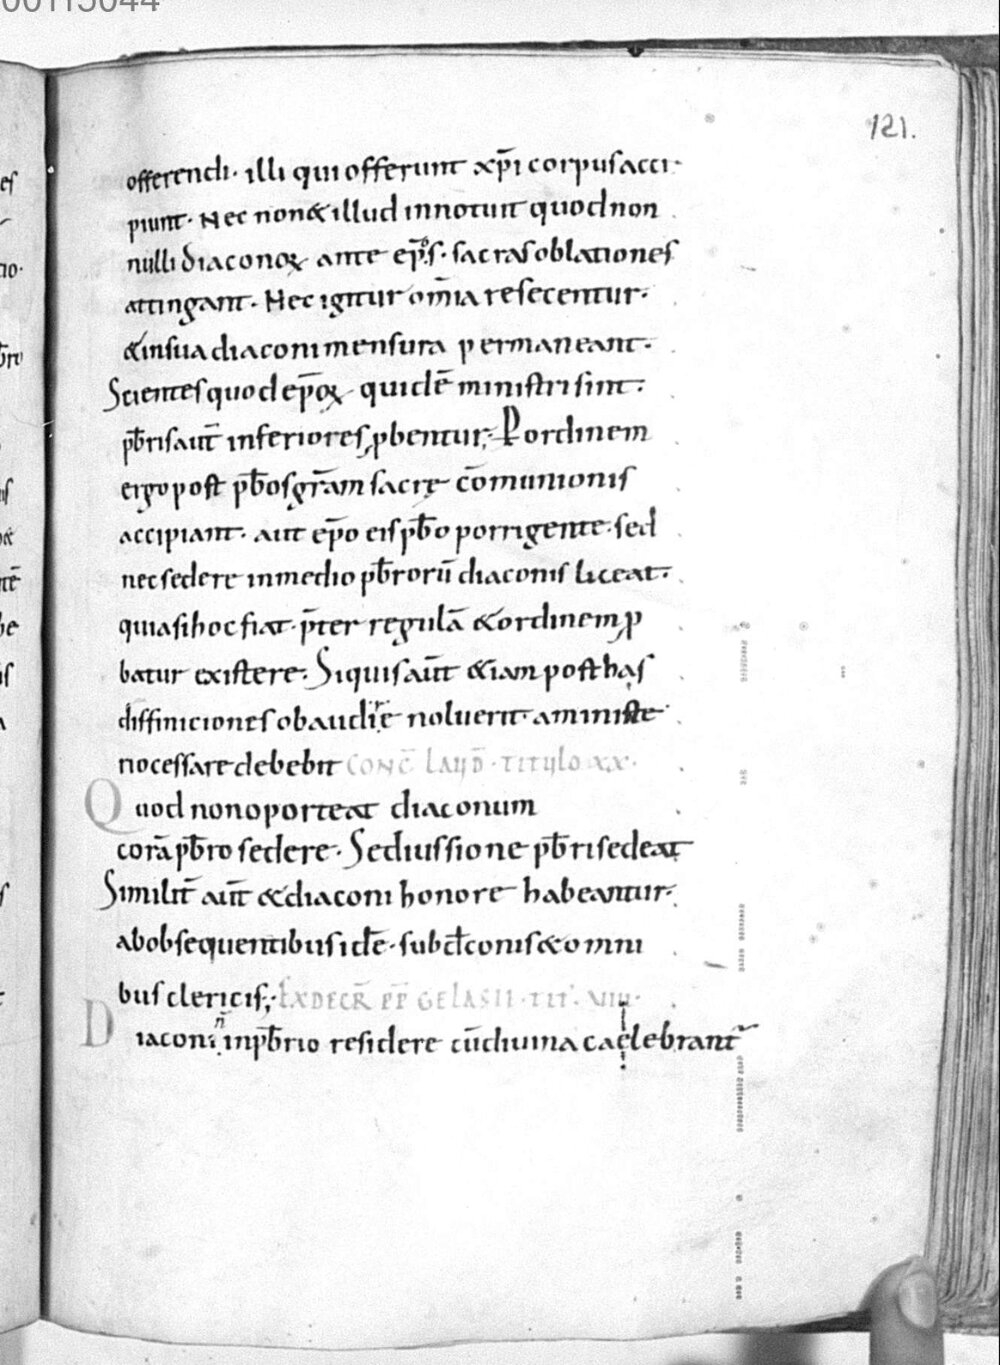 121.
offerendi· illi qui offerunt xp̄i corpus acci·
piunt· Nec non & illud innotuit quod non
nulli diaconoꝝ ante ep̄oſ· sacras oblationes
attingant· Hec igitur om̄ia resecentur·
& in sua diaconi mensura permaneant·
Scientes quod ep̄oꝝ quidē ministri sint·
pb̄ris aut̄ inferiores ꝓbentur; Per ordinem
ergo post pb̄os gr̄am sacrę cōmunionis
accipiant· aut ep̄o eis pb̄o porrigente· sed
nec sedere in medio pb̄rorū diaconis liceat·
quia si hoc fiat· p̄ter regulā & ordinem ꝓ
batur existere· Siquis aūt &iam post has
diffiniciones obaudire noluerit· a ministe
no cessare debebit CONC̄ LAUD̄· TITULO XX·
Quod non oporteat diaconum
corā pb̄ro sedere· Sed iussione pb̄ri sedeat
Similit̄ aūt & diaconi honore habeantur·
ab obsequentibus idē· subdc̄onis & omni
bus clericis; EX DECR̄ PP̄ GELASII· TIT̄· VIIII·
Diaconi n̄ in pb̄rio residere cū diuina caelebrant̄